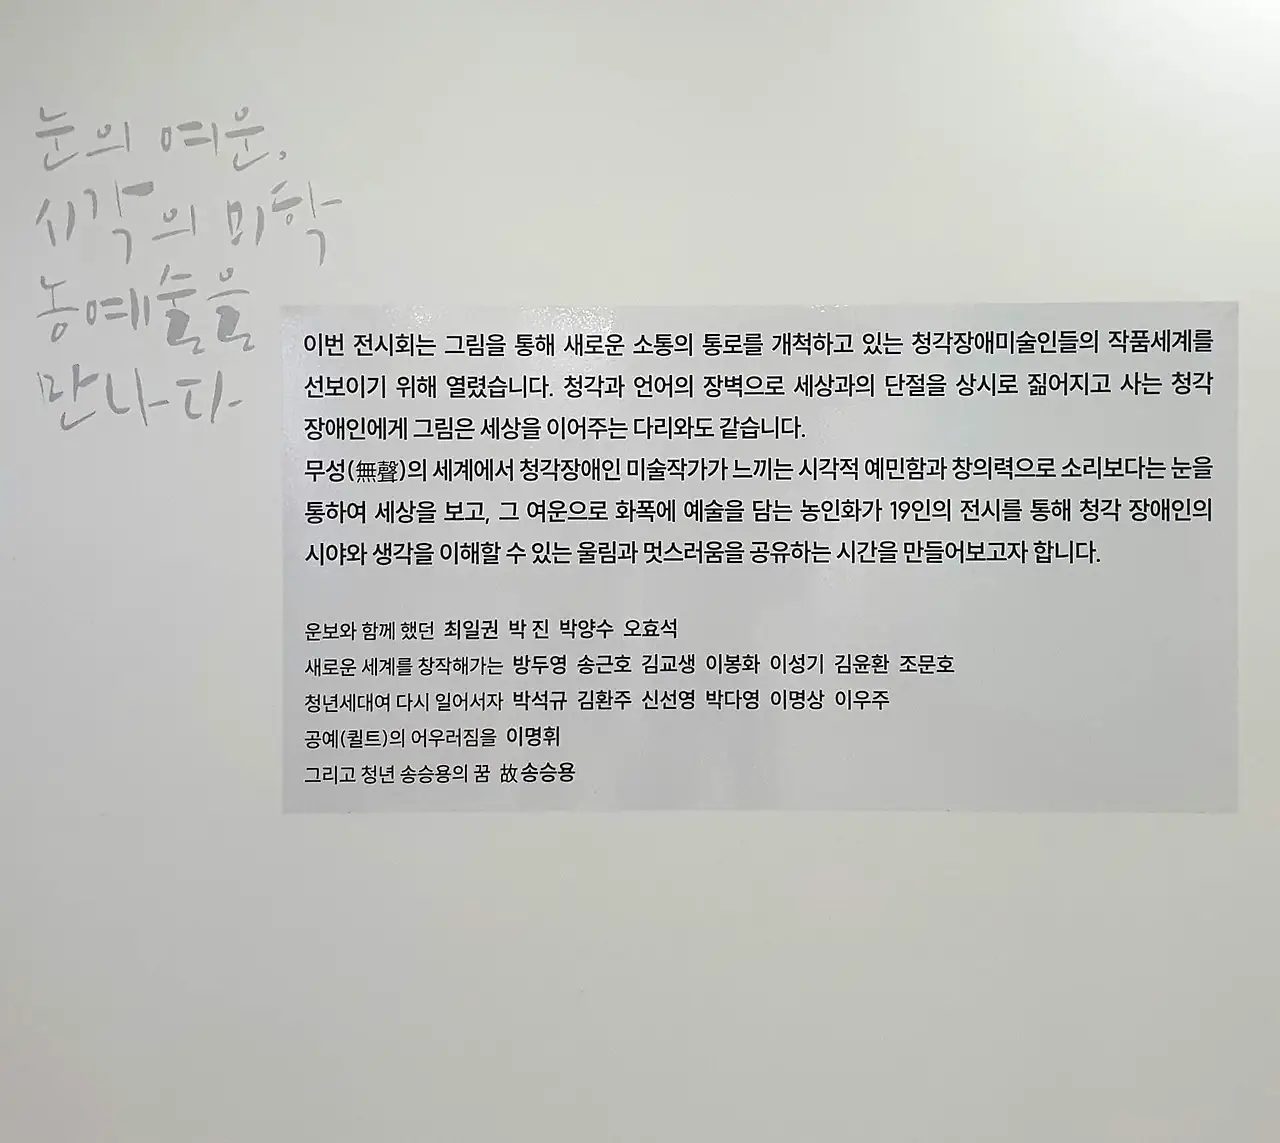 눈의 여운,
시각의 미학
농예술을
만나다
이번 전시회는 그림을 통해 새로운 소통의 통로를 개척하고 있는 청각장애미술인들의 작품세계를
선보이기 위해 열렸습니다. 청각과 언어의 장벽으로 세상과의 단절을 상시로 짊어지고 사는 청각
장애인에게 그림은 세상을 이어주는 다리와도 같습니다.
무성(無聲)의 세계에서 청각장애인 미술작가가 느끼는 시각적 예민함과 창의력으로 소리보다는 눈을
통하여 세상을 보고, 그 여운으로 화폭에 예술을 담는 농인화가 19인의 전시를 통해 청각 장애인의
시야와 생각을 이해할 수 있는 울림과 멋스러움을 공유하는 시간을 만들어보고자 합니다.
운보와 함께 했던 최일권 박 진 박양수 오효석
새로운 세계를 창작해가는 방두영 송근호 김교생 이봉화 이성기 김윤환 조문호
청년세대여 다시 일어서자 박석규 김환주 신선영 박다영 이명상 이우주
공예(퀼트)의 어우러짐을 이명휘
그리고 청년 송승용의 꿈 故송승용